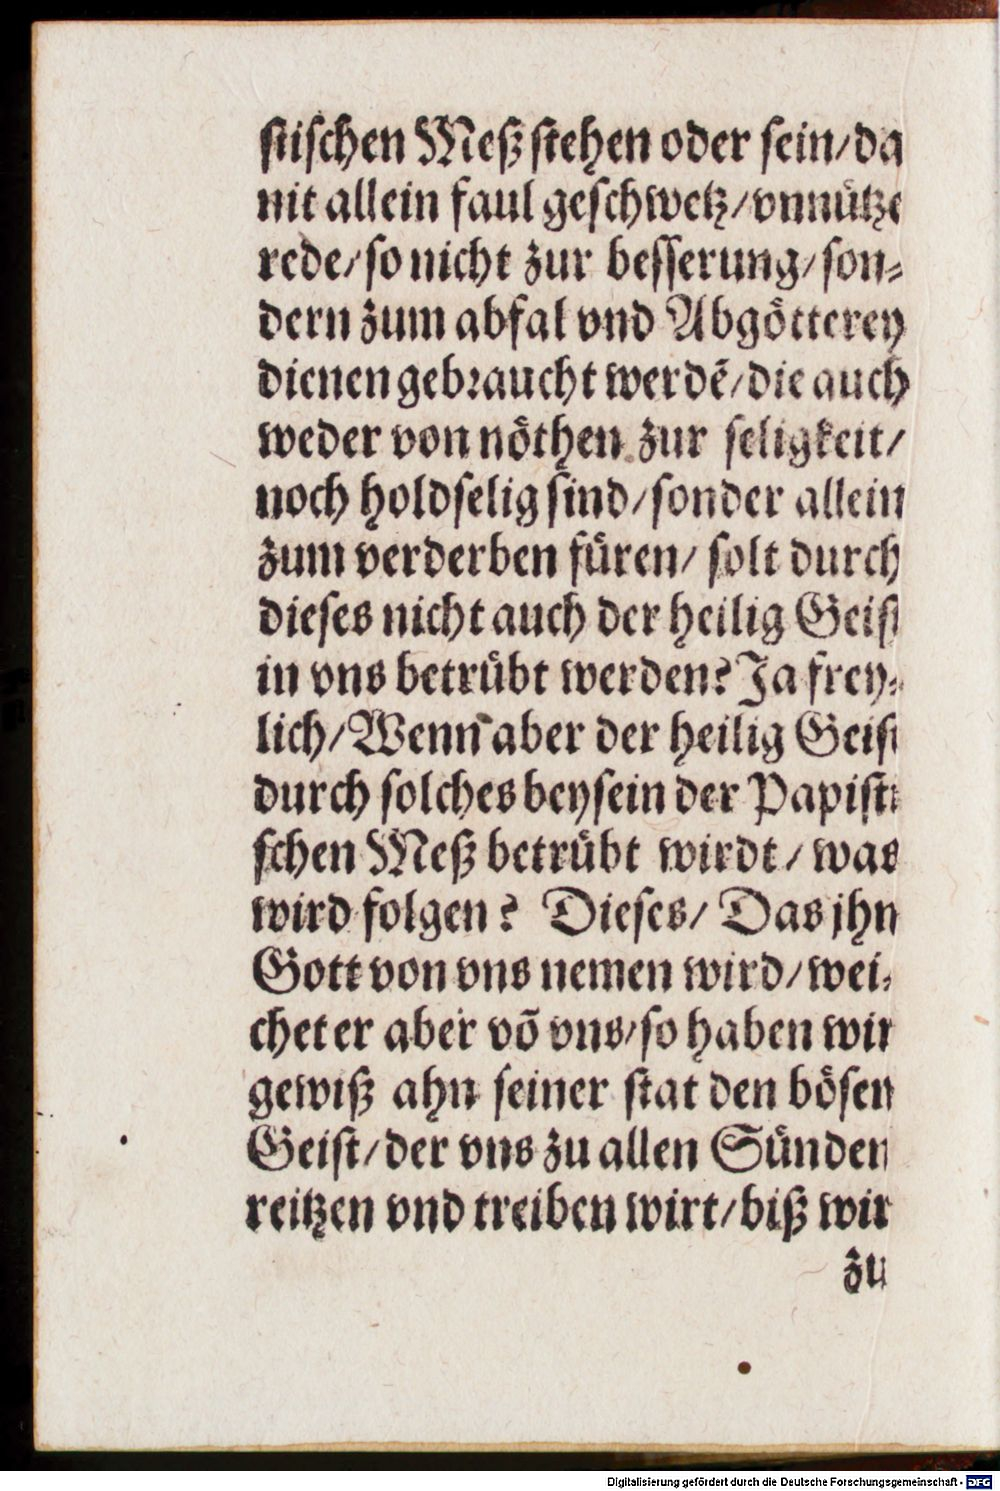 stischen Meß stehen oder sein/ da
nit allein faul geschwetz/ vnnütze
rede/ so nicht zur besserung/ son⸗
dern zum abfal vnd Abgötterey
dienen gebraucht werdē/ die auch
weder von nöthen zur seligkeit/
noch holdselig sind/ sonder allein
zum verderben füren/ solt durch
dieses nicht auch der heilig Geist
in vns betrübt werden? Ja frey⸗
lich/ Wenn aber der heilig Geist
durch solches beysein der Papisti
schen Meß betrübt wirdt/ was
wird folgen? Dieses/ Das jhn
Gott von vns nemen wird/ wei⸗
chet er aber võ vns/ so haben wir
gewiß ahn seiner stat den bösen
Geist/ der vns zu allen Sünden
reitzen vnd treiben wirt/ biß wir
zu
Digitalisierung gefördert durch die Deutsche Forschungsgemeinschaft - DFG